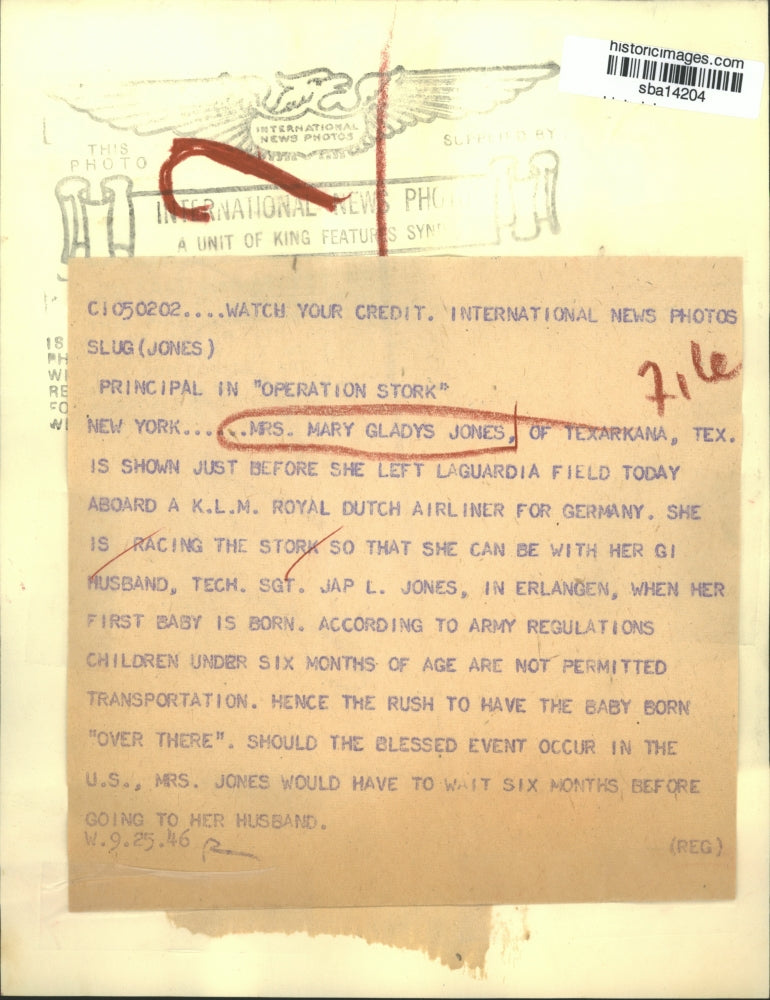 historicimages.com
sba14204
INTERNATIONAL
NEWS PHOTOS
THIS
PHOTO
SUPPLIED BY
INTERNATIONAL NEWS PHO
A UNIT OF KING FEATURES SYN
C1050202....WATCH YOUR CREDIT. INTERNATIONAL NEWS PHOTOS
SLUG (JONES)
PRINCIPAL IN "OPERATION STORK"
NEW YORK......MRS. MARY GLADYS JONES, OF TEXARKANA, TEX.
IS SHOWN JUST BEFORE SHE LEFT LAGUARDIA FIELD TODAY
ABOARD A K.L.M. ROYAL DUTCH AIRLINER FOR GERMANY. SHE
IS RACING THE STORK SO THAT SHE CAN BE WITH HER GI
HUSBAND, TECH. SGT. JAP L. JONES, IN ERLANGEN, WHEN HER
FIRST BABY IS BORN. ACCORDING TO ARMY REGULATIONS
CHILDREN UNDER SIX MONTHS OF AGE ARE NOT PERMITTED
TRANSPORTATION. HENCE THE RUSH TO HAVE THE BABY BORN
"OVER THERE". SHOULD THE BLESSED EVENT OCCUR IN THE
U.S., MRS. JONES WOULD HAVE TO WAIT SIX MONTHS BEFORE
GOING TO HER HUSBAND.
W.9.25.46
(REG)
IS
PH
WI
RE
FO
WI
File